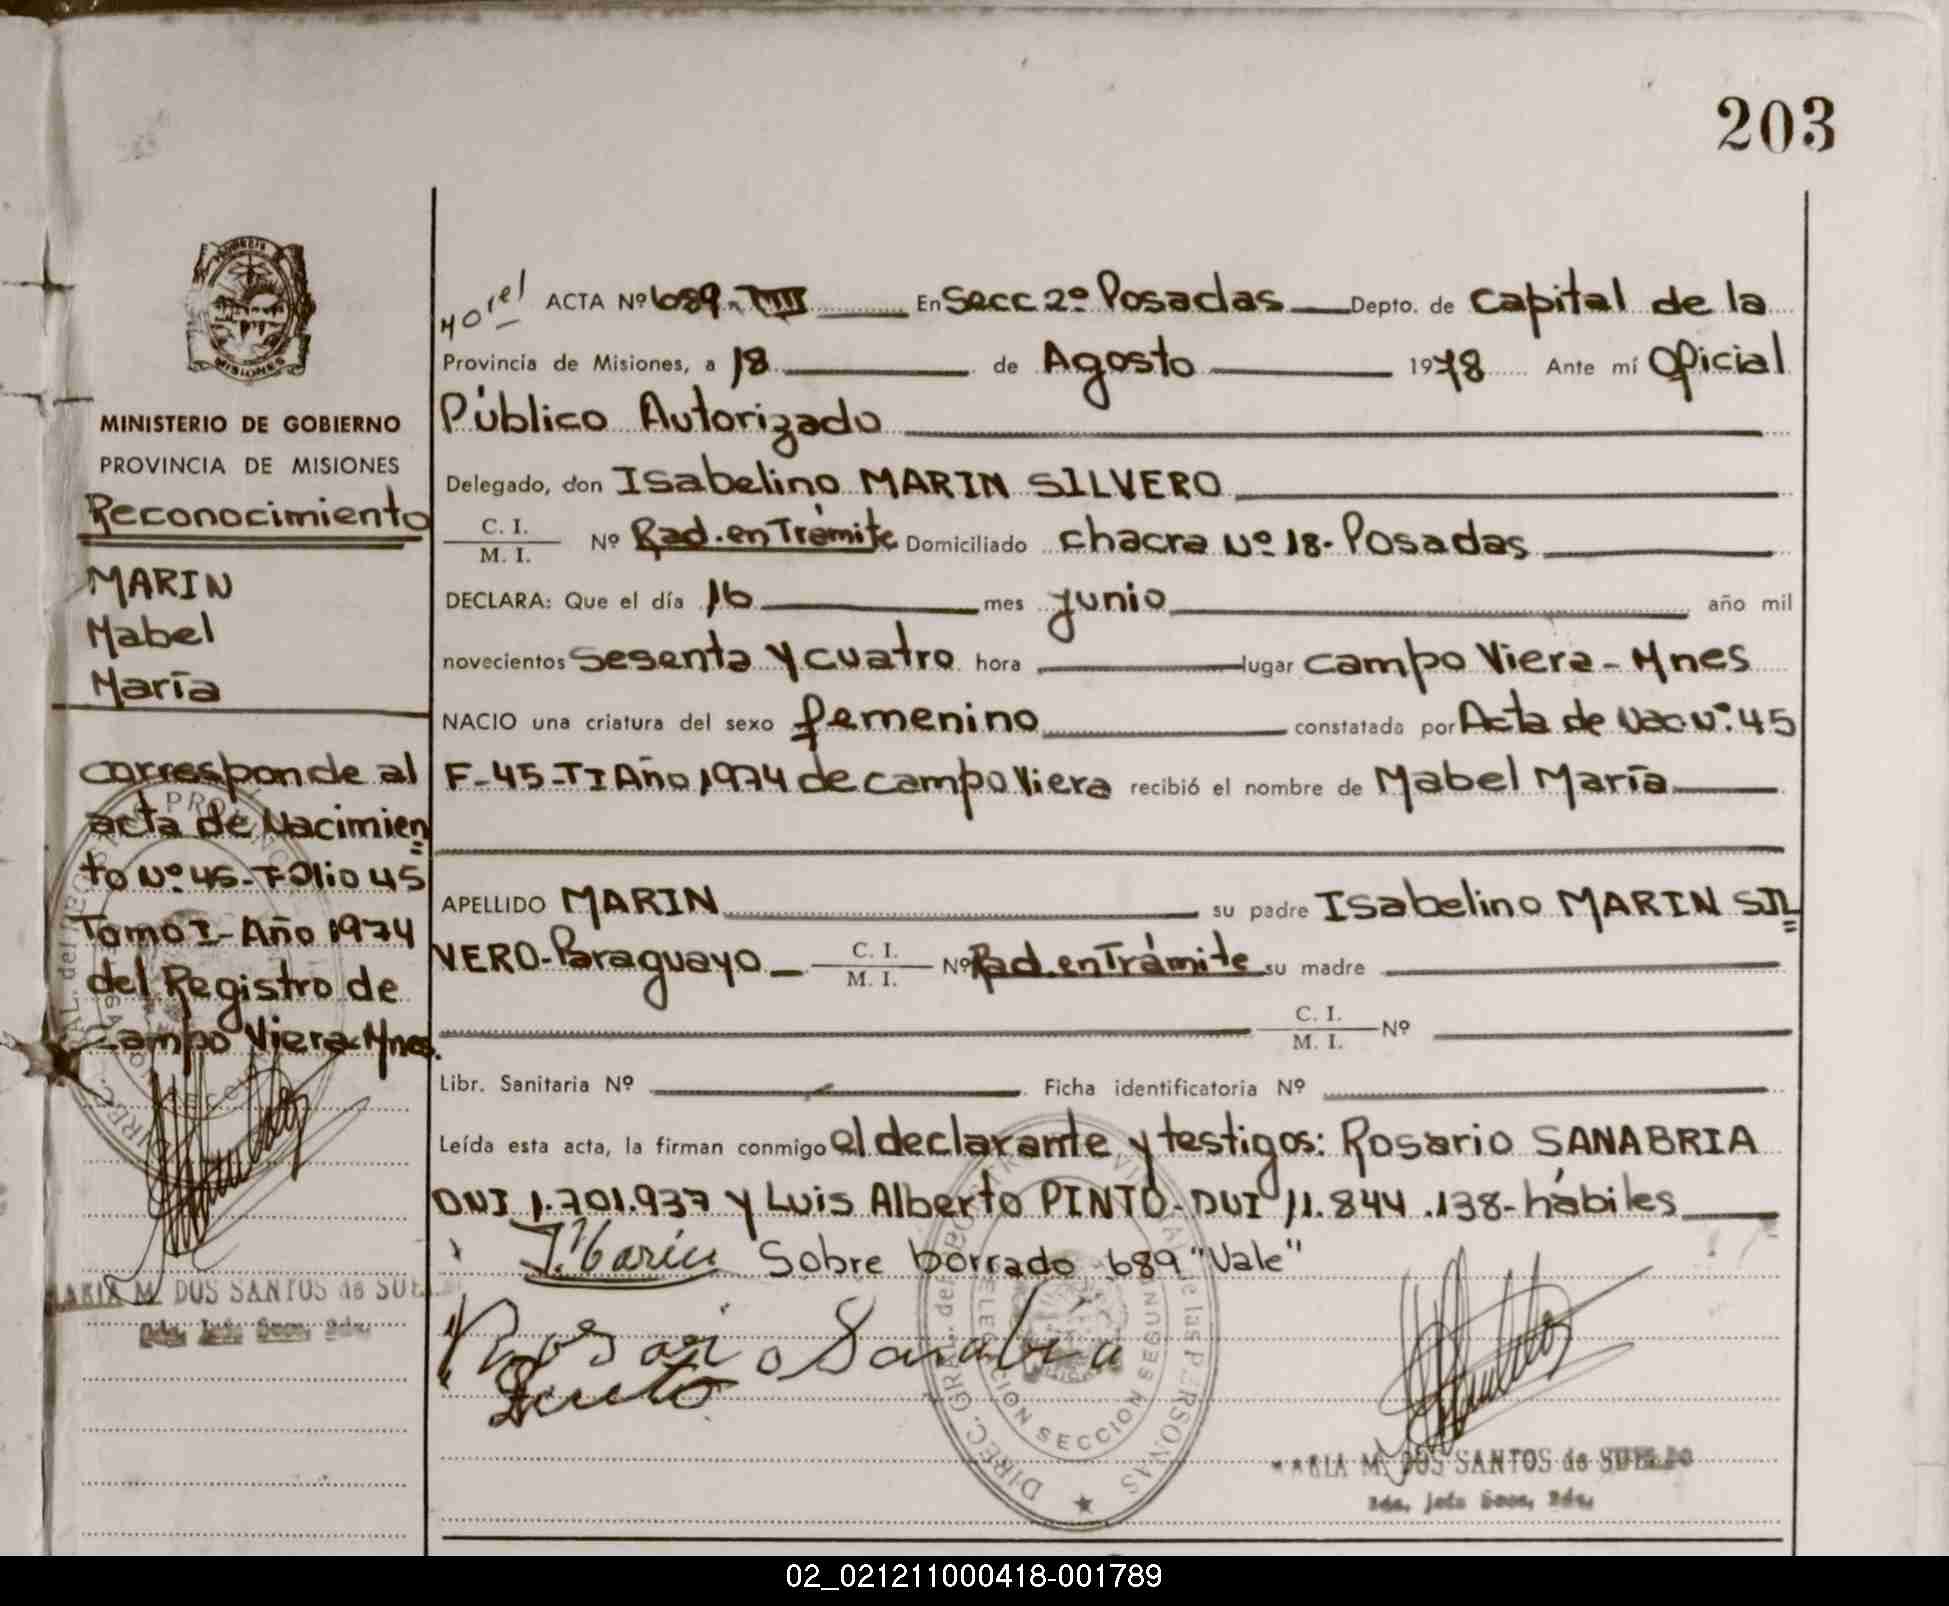 203
ACTA Nº 689 En Secc 2º Posadas Depto. de Capital de la
Provincia de Misiones, a 18 de Agosto 1978 Ante mí Oficial
Público Autorizado
Delegado, don Isabelino MARIN SILVERO
C. I.
M. I.
Nº Rad. en Trámite Domiciliado chacra Nº 18- Posadas
DECLARA: Que el día 16 mes junio año mil
novecientos sesenta y cuatro hora lugar campo Viera - Mnes
NACIO una criatura del sexo femenino constatada por Acta de Nac. Nº. 45
F-45-TI Año 1974 de campo Viera recibió el nombre de Mabel María
APELLIDO MARIN su padre Isabelino MARIN SIL
VERO-Paraguayo C. I.
M. I.
Nº Rad. en Trámite su madre
C. I.
M. I.
Nº
Libr. Sanitaria Nº Ficha identificatoria Nº
Leída esta acta, la firman conmigo el declarante y testigos: Rosario SANABRIA
DNI 1.701.937 y Luis Alberto PINTO- DNI 11.844.138- hábiles
I. Marin Sobre borrado 689 "Vale"
Rosario Sanabria
MARIA M. DOS SANTOS de SUELDO
MISIONES
MINISTERIO DE GOBIERNO
PROVINCIA DE MISIONES
Reconocimiento
MARIN
Mabel
María
corresponde al
acta de Nacimien
to Nº 45-Folio 45
Tomo I-Año 1974
del Registro de
Campo Viera-Mnes.
MARIA M. DOS SANTOS de SUEL
DIREC. GRAL. del REGISTRO de las PERSONAS
SECCION SEGUNDA
02_021211000418-001789